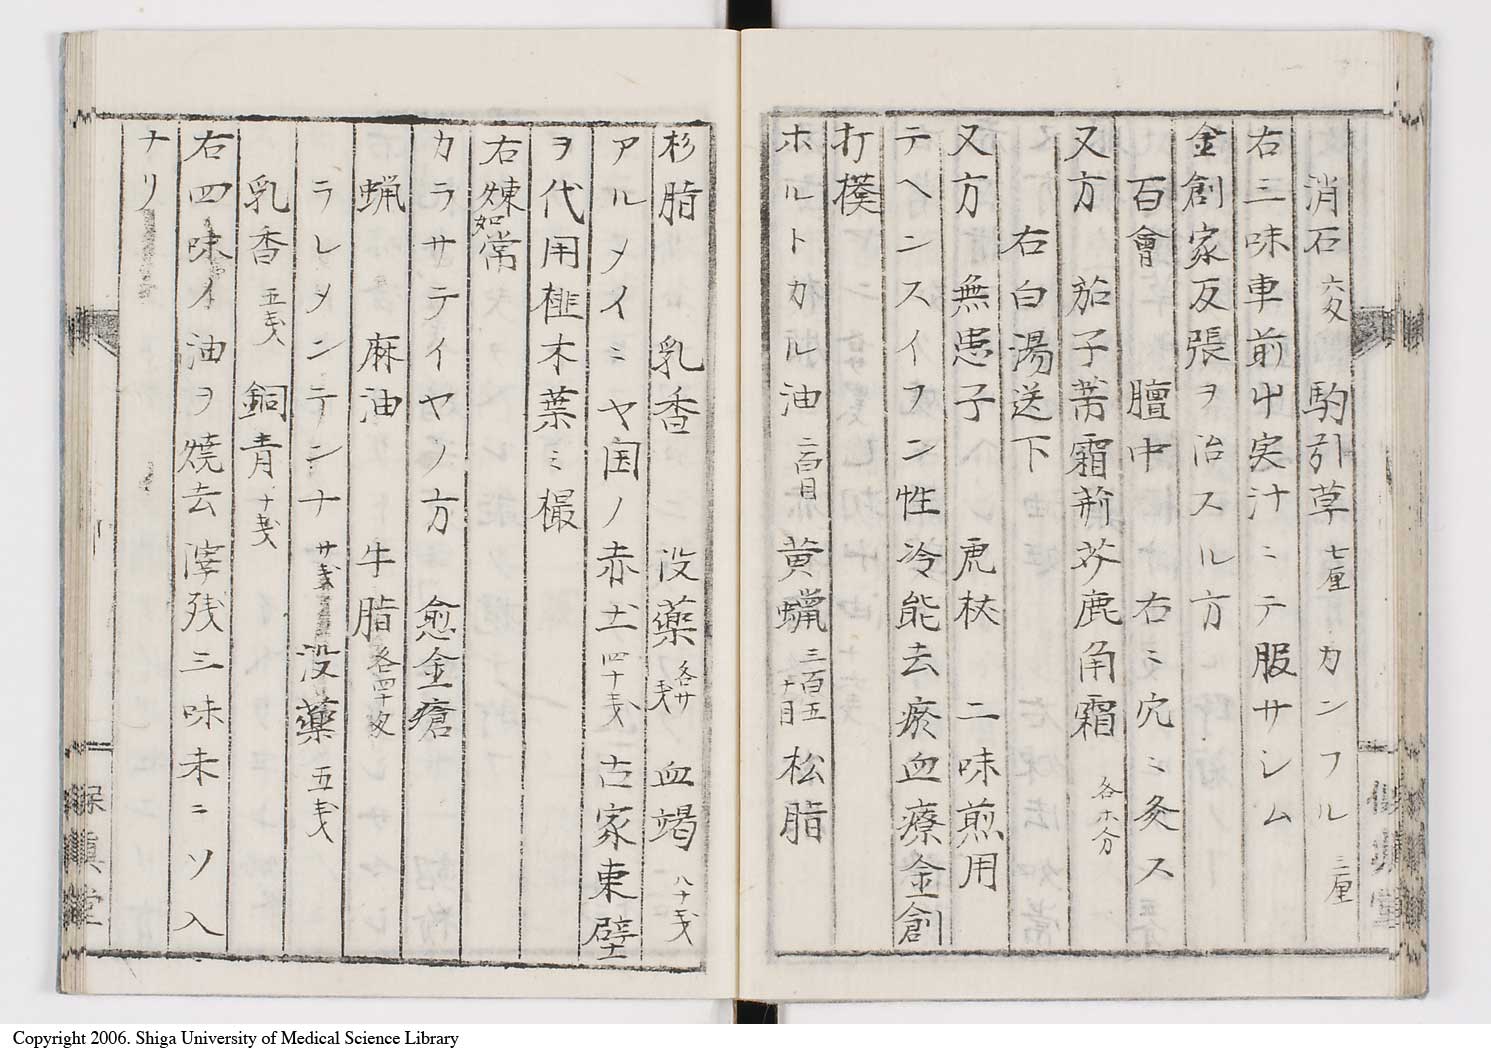 消石 六攵 駒引草 七厘 カンフル 三厘
右三味車前屮実汁ニテ服サシム
金創家反張ヲ治スル方
百會 膻中 右ミ穴ミ灸ス
又方 茄子蔕霜 荊芥 鹿角霜 各等分
右白湯送下
又方 無患子 虎杖 二味煎用
テヘンスイヲン性冷能去瘀血療金創
打撲
ホルトカル油 二百目 黄蠟 三百五十目 松脂
杉脂 乳香 没藥 各廿戔 血竭 八十戔
アルメイミヤ国ノ赤土 四十戔 古家東壁
ヲ代用榧木葉ミ撮
右煉如常
カラサテイヤノ方 愈金瘡
蝋 麻油 牛脂 各四十攵
ラレメンテンナ 廿戔 没藥 五戔
乳香 五戔 銅青 十戔
右四味イ油ヲ燒去滓残三味末ニソ入
ナリ
保真堂
Copyright 2006. Shiga University of Medical Science Library